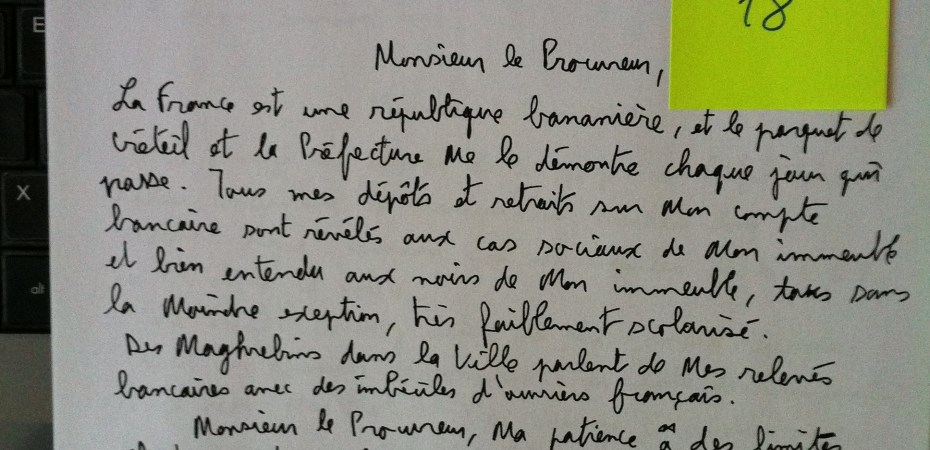 18
Monsieur le Procureur,
La France est une république bananière, et le parquet de
Créteil et la Préfecture me le démontre chaque jour qui
passe. Tous mes dépôts et retraits sur mon compte
bancaire sont révélés aux cas sociaux de mon immeuble
et bien entendu aux noirs de mon immeuble, tous sans
la moindre exception, très faiblement scolarisé.
Des Maghrebins dans la ville parlent de mes relevés
bancaires avec des imbéciles d'ouvriers français.
Monsieur le Procureur, ma patience a des limites
E
X
alt